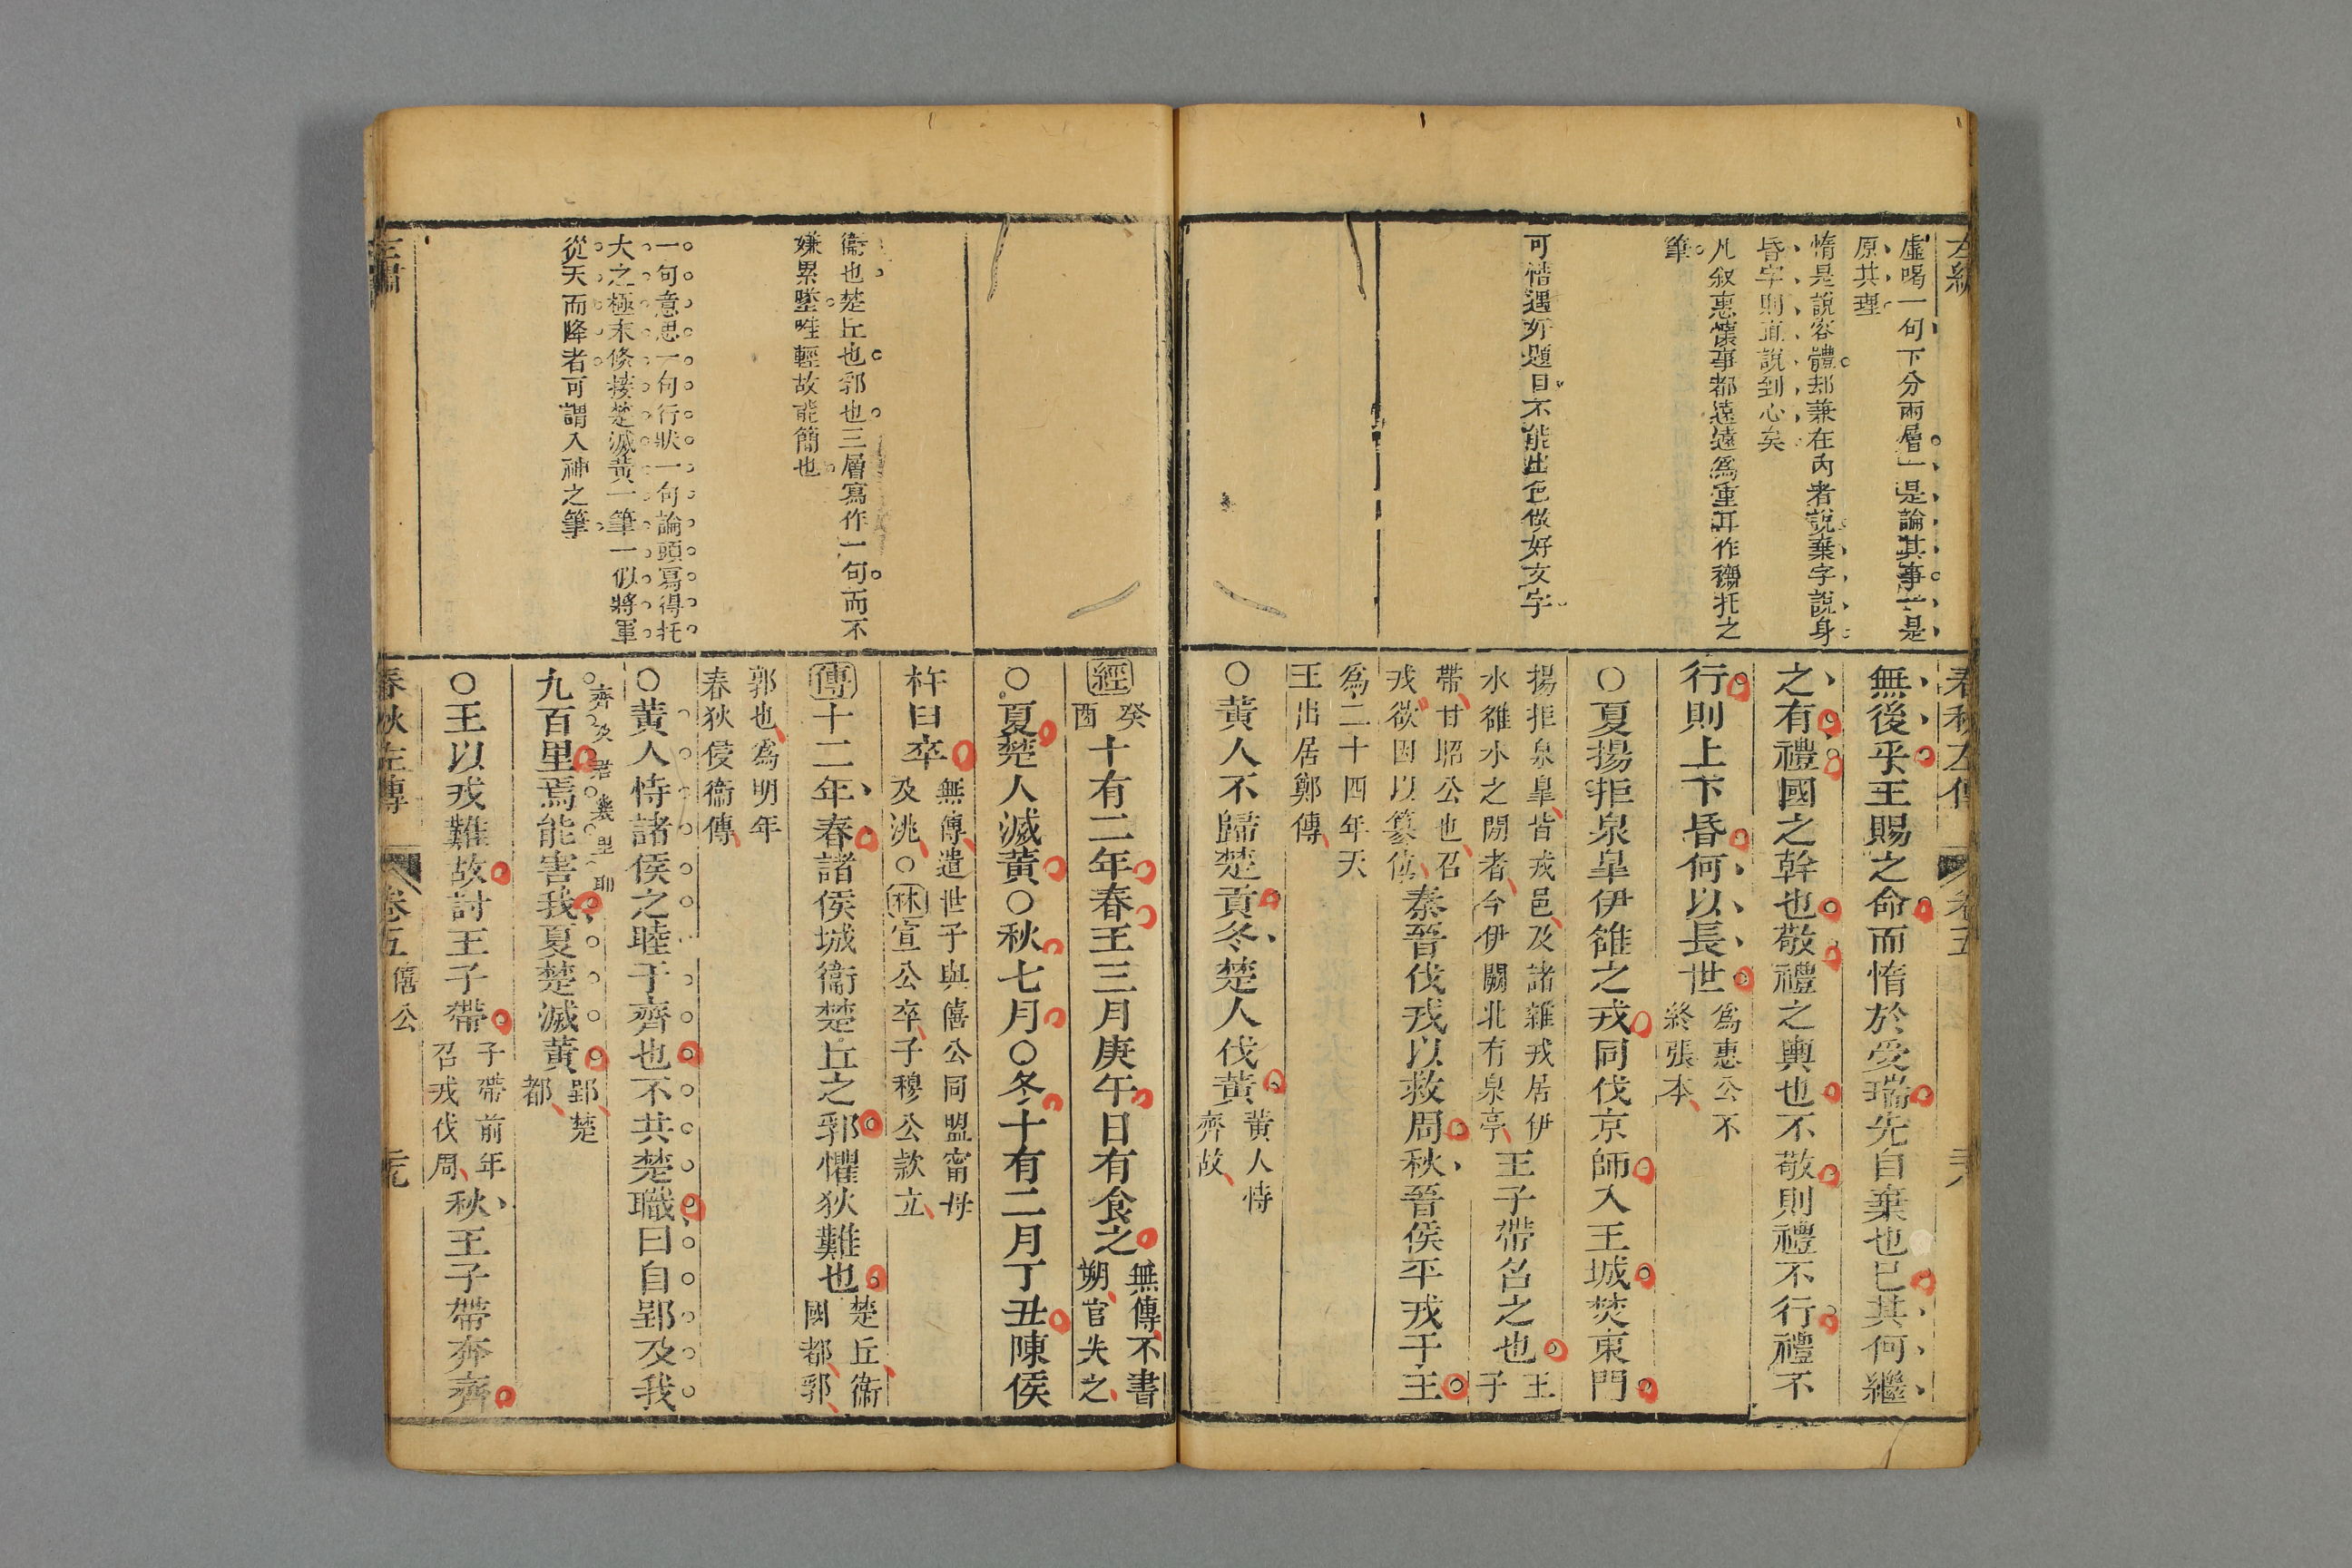 虛喝一句下分兩層一是論其事一是
原其理
惰是說容體却兼在內者說棄字說身
昏字則直說到心矣
凡叙惠懷事都遠遠爲重耳作襯托之
筆
可惜遇好題目不能出色做好文字
春秋左傳 卷五
無後乎王賜之命而惰於受瑞先自棄也已其何繼
之有禮國之幹也敬禮之輿也不敬則禮不行禮不
行則上下昏何以長世
爲惠公不
終張本
○夏揚拒泉臯伊雒之戎同伐京師入王城焚東門
揚拒泉臯皆戎邑及諸雜戎居伊
水雒水之閒者今伊闕北有泉亭
王子帶召之也
王
子
帶甘昭公也召
戎欲因以篡位
秦晉伐戎以救周秋晉侯平戎于王
爲二十四年天
王出居鄭傳
○黃人不歸楚貢冬楚人伐黃
黃人恃
齊故
衞也楚丘也郛也三層寫作一句而不
嫌累墜唯輕故能簡也
一句意思一句行狀一句論頭寫得托
大之極末倐接楚滅黃一筆一似將軍
從天而降者可謂入神之筆
經
癸
酉
十有二年春王三月庚午日有食之
無傳不書
朔官失之
○夏楚人滅黃○秋七月○冬十有二月丁丑陳侯
杵臼卒
無傳遣世子與僖公同盟甯母
及洮○林宣公卒子穆公款立
傳十二年春諸侯城衞楚丘之郛懼狄難也
楚丘衞
國都郛
郭也爲明年
春狄侵衞傳
○黃人恃諸侯之睦于齊也不共楚職曰自郢及我
九百里焉能害我夏楚滅黃
郢楚
都
○王以戎難故討王子帶
子帶前年
召戎伐周
秋王子帶奔齊
春秋左傳 卷五 僖公